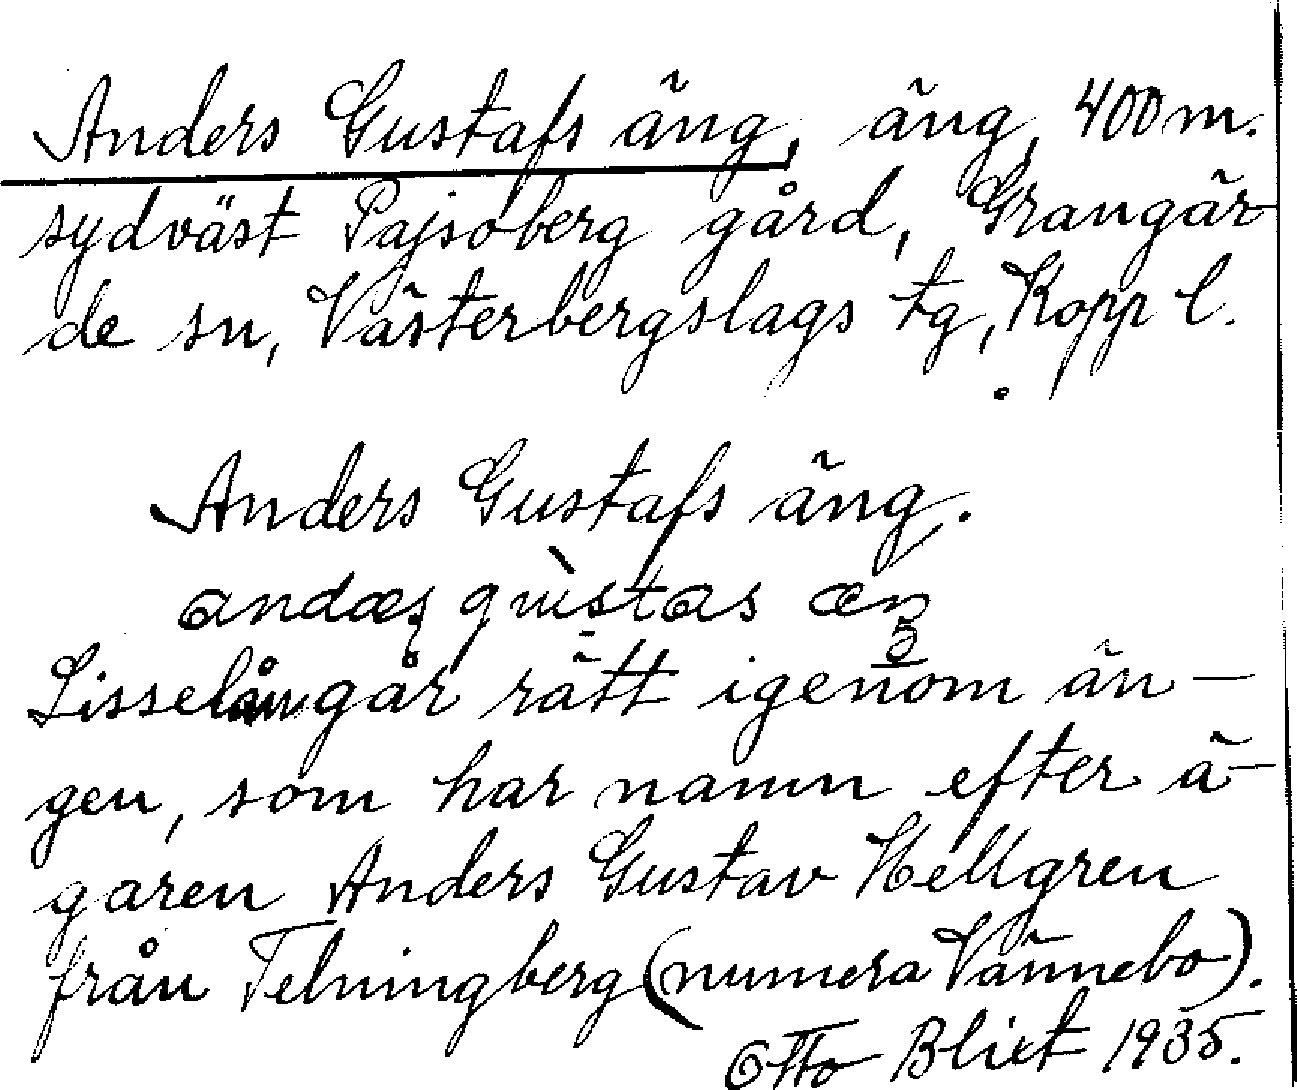 Anders Gustafs äng, äng, 400 m.
sydväst Pajsoberg gård, Grangär-
de sn, Västerbergslags tg, Kopp l.
Anders Gustafs äng.
Lisselån går rätt igenom än-
gen, som har namn efter ä-
garen Anders Gustav Hellgren
från Telningberg (numera Vännebo).
Otto Blixt 1935.